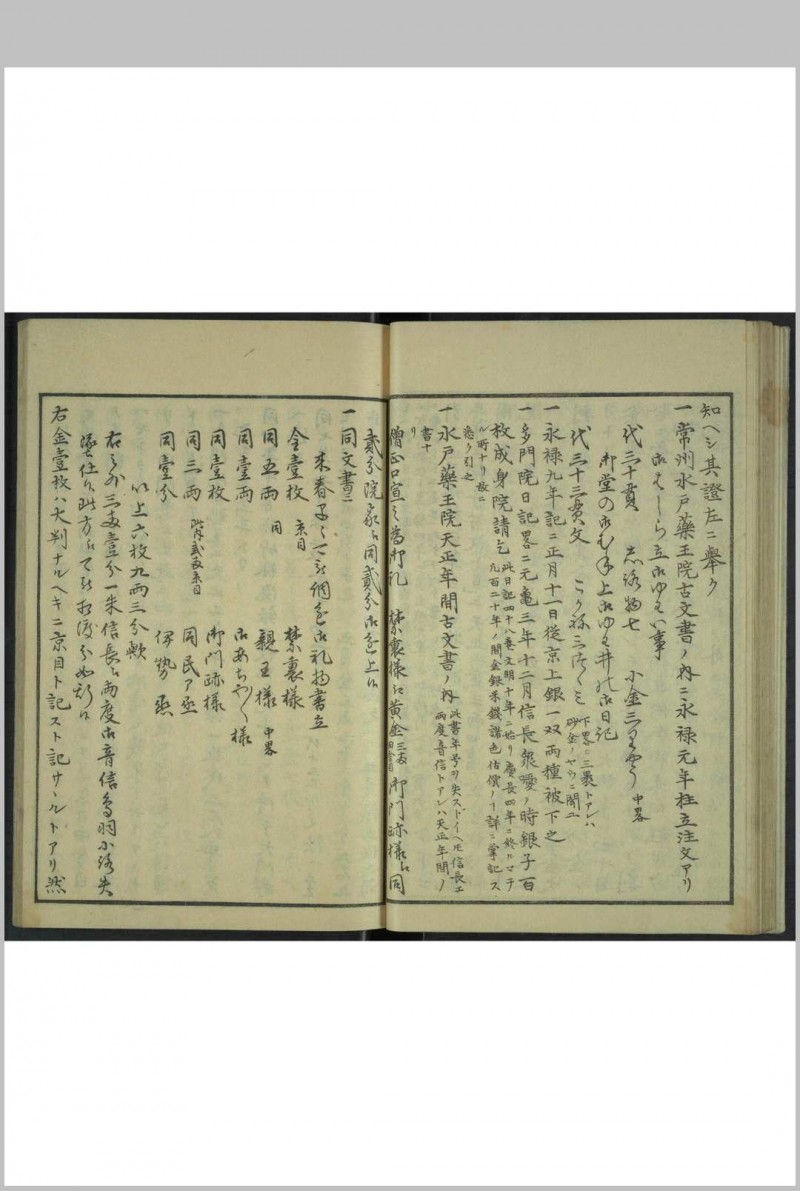 知ヘシ其證左ニ舉ク
一常州水戸藥王院古文書ノ内ニ永禄元年柱立注文アリ
はしら立御ゆわい事
代三十貫 小金三 中畧
御堂の御むね上御ゆわ井の御日記
代三十三貫文 こかね三つゝミ 下畧○三裹トアンハ砂金ノヤウニ聞ユ
一永禄九年記ニ正月十一日從京上銀一双両種被下之
一多門院日記畧ニ元亀三年十二月信長衆噯ノ時銀子百
枚成身院請乞 此日記四十八巻文明十年ニ始リ慶長四年ニ終ルマテ
凡百二十年ノ間金銀米錢諸色估償ノ詳ニ掌記ス
ル所ナリ故ニ悉ク引之
一水戸藥王院天正年間古文書ノ内 此書年号ヲ失スドイヘ𪜈信長エ
両度音信トアンハ天正年間ノ
書ナリ
僧正口宣之為御礼 禁裏様江黄金三 御門跡様江同
貳分院家江同貳分御を上候
一同文書ニ
来春 御礼物書立
金壹枚 京目 禁裏様
同五両 同 親王様 中畧
同壹両 御あちや〳〵様
同壹枚 御門跡様
同三両 此内 京目 同民ア丞
同壹分 伊勢丞
以上六枚九両三分歟
右之外三 壹分一朱信長江両度御音信 失
墜仕候此方 渡分如斯候
右金壹枚ハ大判ナルヘキニ京目ト記スト記サヽルトアリ然